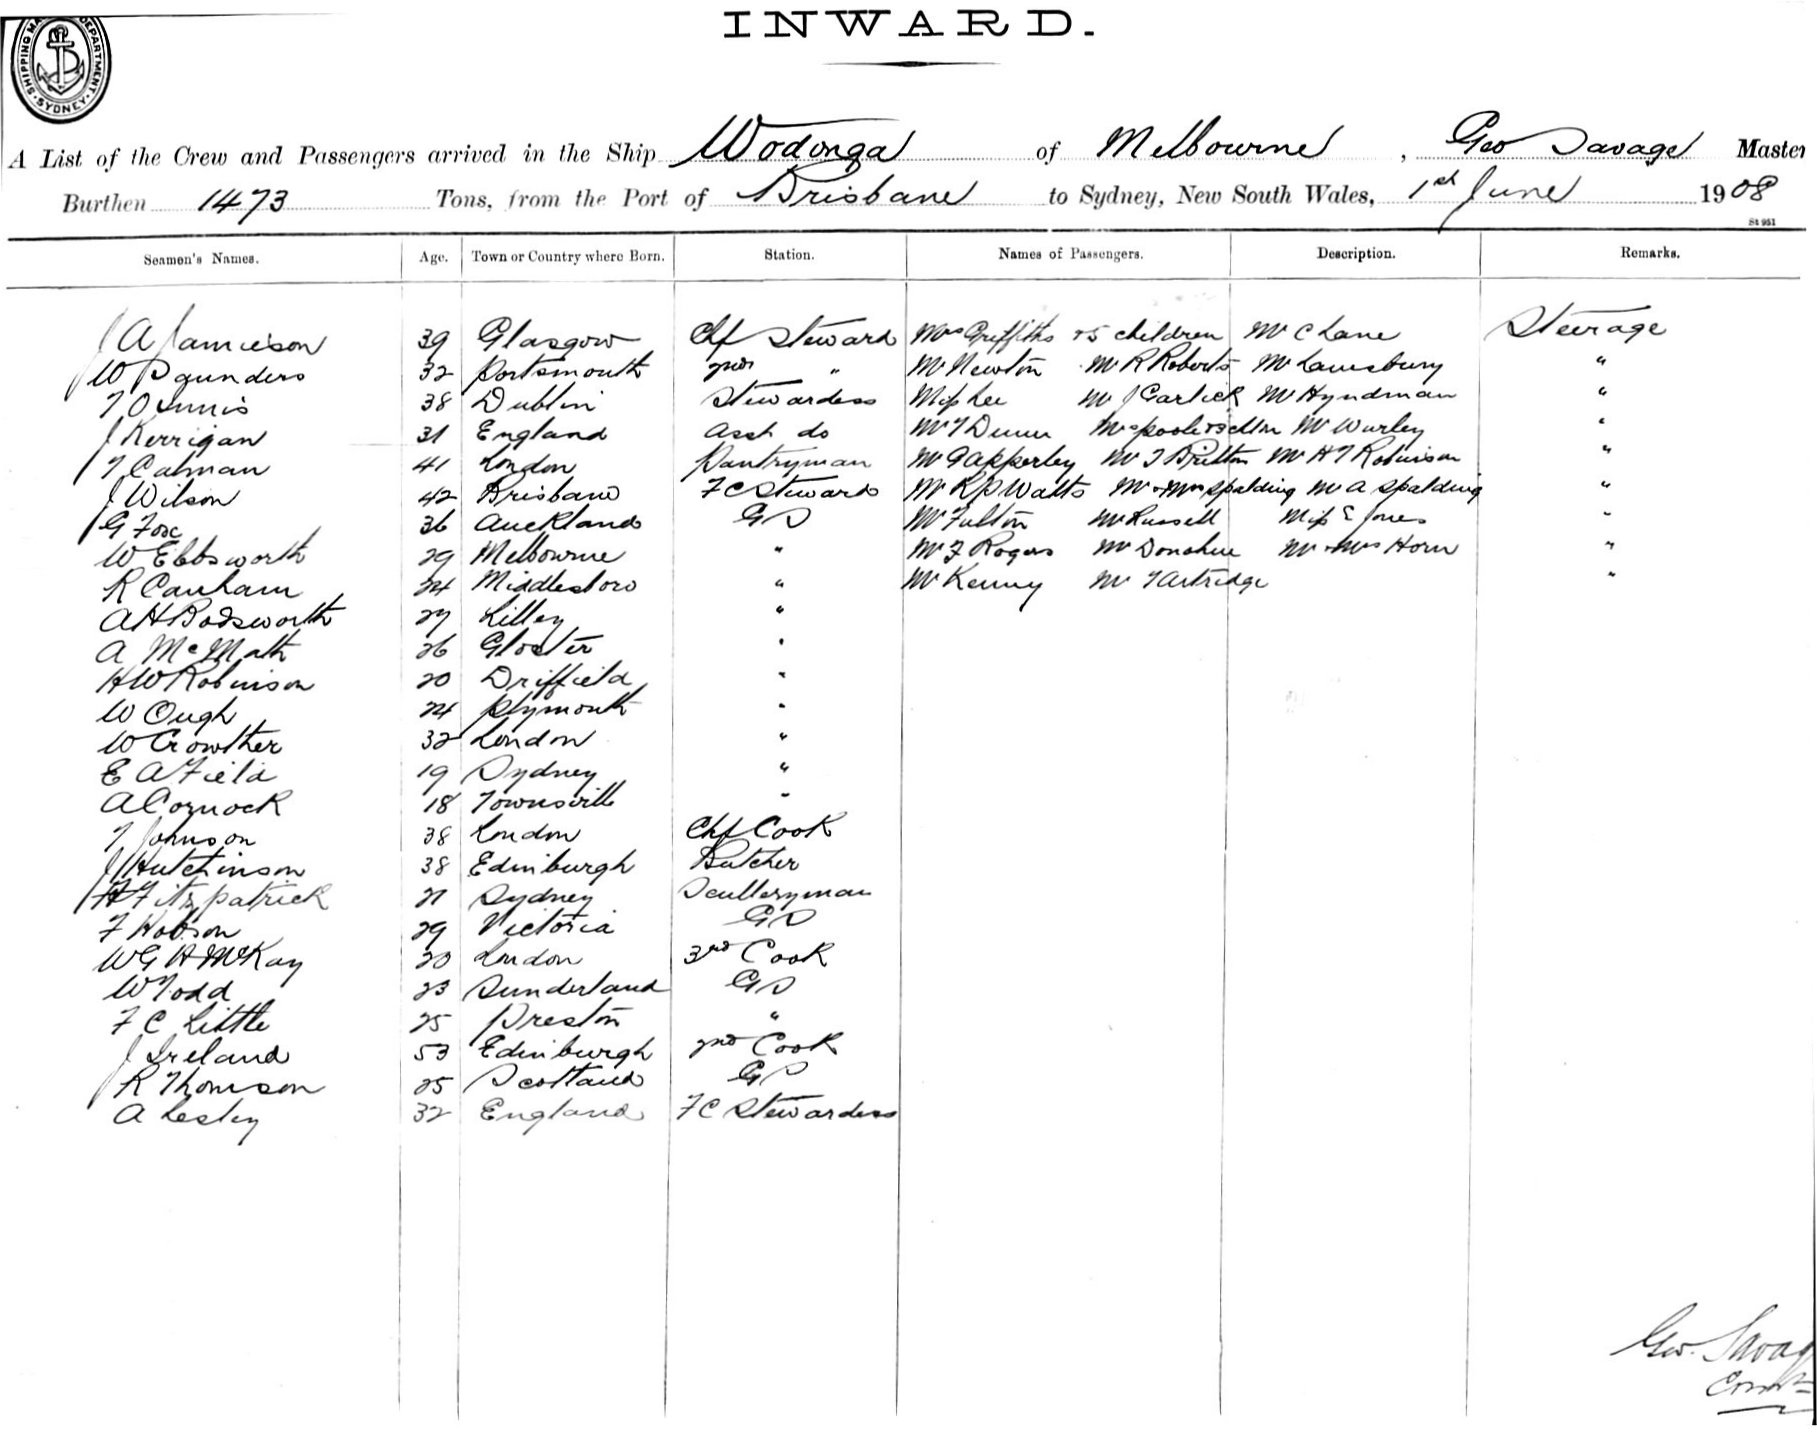 INWARD.
SHIPPING MA DEPARTMENT. SYDNEY
A List of the Crew and Passengers arrived in the Ship Wodonga of Melbourne, Geo Savage Master
Burthen 1473 Tons, from the Port of Brisbane to Sydney, New South Wales, 1st June 1908
St 951
Seamen's Names. Age. Town or Country where Born. Station. Names of Passengers. Description. Remarks.
J A Jamieson 39 Glasgow Chf Steward Mrs Griffiths & 5 children Mr C Lane Steerage
W Saunders 32 Portsmouth 2nd " Mr Newton Mr R Roberts Mr "
38 Dublin Stewardess Miss Lee Mr J Garlick Mr Hyndman "
J Kerrigan 31 England Asst do Mr T Dunn Mr Wurley "
T Calman 41 London Pantryman Mr G Apperley Mr J Britton Mr H T Robinson "
J Wilson 42 Brisbane F C Steward Mr R P Watts Mr & Mrs Spalding Mr A Spalding "
G Fox 36 Auckland G S Mr Fulton Mr Russell Miss E Jones "
W Ebbsworth 29 Melbourne " Mr F Rogers Mr Donohue Mr & Mrs Horn "
R Canham 24 Middlesboro " Mr Kenny Mr Tartridge "
A H Bodsworth 27 Lilley "
A McMath 26 Gloster "
H W Robinson 20 Driffield "
W Ough 24 Plymouth "
W Crowther 32 London "
E A Field 19 Sydney "
A Cornock 18 Townsville "
T Johnson 38 London Chf Cook
J Hutchinson 38 Edinburgh Butcher
H Fitzpatrick 21 Sydney Sculleryman
F Hobson 29 Victoria G S
W G H McKay 20 London 3rd Cook
W Todd 23 Sunderland G S
F C Little 25 Preston "
J Ireland 53 Edinburgh 2nd Cook
R Thomson 25 Scotland G S
A Lesley 32 England F C Stewardess
Geo. Savag